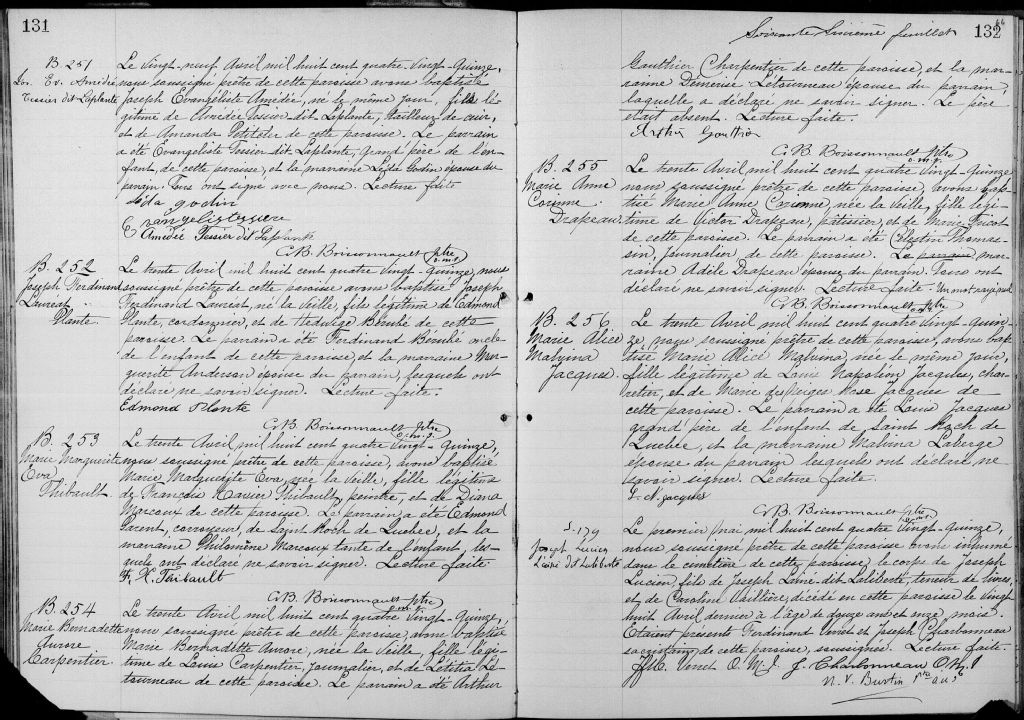 131
B. 251
Jos. Ev. Amédée
Tessier dit Laplante
Le vingt-neuf Avril mil huit cent quatre vingt-quinze,
nous soussigné prêtre de cette paroisse avons baptisé
Joseph Evangéliste Amédée, né le même jour, fils lé-
gitime de Amédée Tessier dit Laplante, tailleur de cuir,
et de Amanda de cette paroisse. Le parrain
a été Evangéliste Tessier dit Laplante, grand père de l'en-
fant, de cette paroisse, et la marraine Léda Godin épouse du
parrain. Lecture faite
Léda godin
Amédée Tessier dit Laplante
G. B. Boissonnault ptre
o.m.i.
B. 252
Joseph Ferdinand
Lauréat
Plante.
Le trente Avril mil huit cent quatre vingt-quinze, nous
soussigné prêtre de cette paroisse avons baptisé Joseph
Ferdinand Lauréat, né la veille, fils légitime de Edmond
Plante, cordonnier, et de Hedwidge Bérubé de cette
paroisse. Le parrain a été Ferdinand Bérubé oncle
de l'enfant de cette paroisse et la marraine Mar-
guerite Anderson épouse du parrain, lesquels ont
déclaré ne savoir signer. Lecture faite.
Edmond Plante
G. B. Boissonnault ptre
o.m.i.
B. 253
Marie Marguerite
Eva
Thibault.
Le trente Avril mil huit cent quatre vingt-quinze,
nous soussigné prêtre de cette paroisse, avons baptisé
Marie Marguerite Eva, née la veille, fille légitime
de François Xavier Thibault, peintre, et de Diana
Marcoux de cette paroisse. Le parrain a été Edmond
Parent, corroyeur, de Saint Roch de Québec, et la
marraine Philomène Marcoux tante de l'enfant, les-
quels ont déclaré ne savoir signer. Lecture faite.
F. X. Thibault
G. B. Boissonnault ptre
o.m.i.
B. 254
Marie Bernadette
Aurore
Carpentier.
Le trente Avril mil huit cent quatre vingt-quinze,
nous soussigné prêtre de cette paroisse, avons baptisé
Marie Bernadette Aurore, née la veille, fille légi-
time de Louis Carpentier, journalier, et de Létitia Lé-
tourneau de cette paroisse. Le parrain a été Arthur
Soixante Sixième feuillet
66
132
Gauthier Charpentier de cette paroisse, et la mar-
raine Démerise Létourneau épouse du parrain,
laquelle a déclaré ne savoir signer. Le père
était absent. Lecture faite.
Arthur Gauthier
G. B. Boissonnault ptre
o.m.i.
B. 255
Marie Anne
Corinne
Drapeau.
Le trente Avril mil huit cent quatre vingt-quinze
nous soussigné prêtre de cette paroisse, avons bap-
tisé Marie Anne Corinne, née la veille, fille légi-
time de Victor Drapeau, pâtissier, et de Marie
de cette paroisse. Le parrain a été Célestin Thomas-
sin, journalier de cette paroisse. La parrain mar-
raine Adèle Drapeau épouse du parrain. Tous ont
déclaré ne savoir signer. Lecture faite. Un mot rayé nul
G. B. Boissonnault ptre
o.m.i.
B. 256
Marie Alice
Malvina
Jacques.
Le trente Avril mil huit cent quatre vingt-quin-
ze, nous soussigné prêtre de cette paroisse, avons bap-
tisé Marie Alice Malvina, née le même jour,
fille légitime de Louis Napoléon Jacques, char-
retier, et de Marie des Neiges Rose Jacques de
cette paroisse. Le parrain a été Louis Jacques
grand père de l'enfant de Saint Roch de
Québec, et la marraine Malvina Laberge
épouse du parrain lesquels ont déclaré ne
savoir signer. Lecture faite.
L. N. Jacques
G. B. Boissonnault ptre
o.m.i.
S. 179
Joseph Lucien
Lainé dit Laliberté
Le premier Mai mil huit cent quatre vingt-quinze,
nous soussigné prêtre de cette paroisse avons inhumé
dans le cimetière de cette paroisse, le corps de Joseph
Lucien, fils de Joseph Lainé dit Laliberté, teneur de livres,
et de Caroline Vaillière, décédé en cette paroisse le vingt
huit Avril dernier à l'âge de douze ans et onze mois.
Etaient présents Ferdinand Verret et Joseph Charbonneau
sacristain de cette paroisse, soussignés. Lecture faite.
Verret O.M.I. J. Charbonneau O.M.I